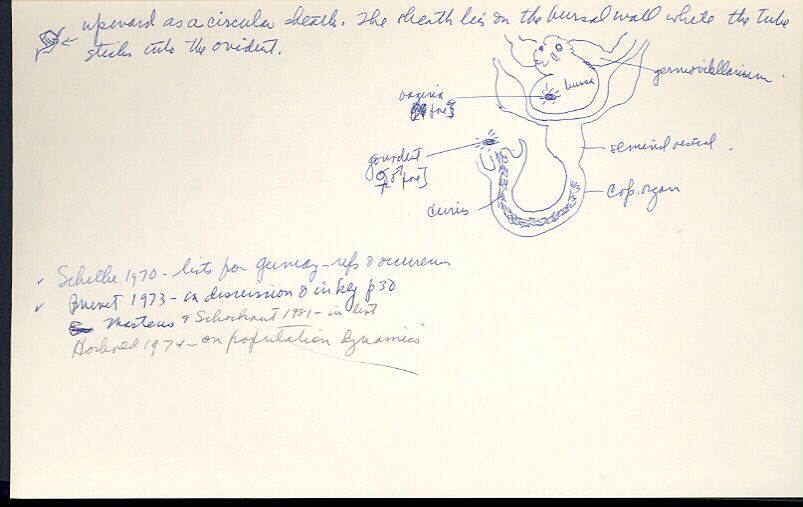 upward as a circular sheath. The sheath lies on the bursal wall where the tube
sticks into the oviduct.
germovitellarium
bursa
vagina
seminal vesical
gonoduct
cop. organ
cirrus
Schilke 1970 - lists for Germany - refs & occurrence
Brunet 1973 - in discussion & in key p 30
Martens & Schockaert 1981 - in list
Hoxhold 1974 - on population dynamics